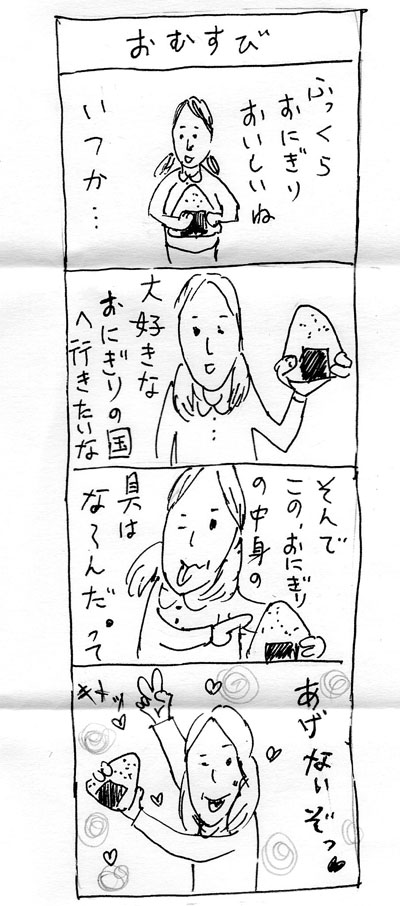 おむすび
ふっくら
おにぎり
おいしいね
いつか…
大好きな
おにぎりの国
へ行きたいな
そんで
この、おにぎり
の中身の
具は
な〜んだ。って
あげないぞっ
キャッ